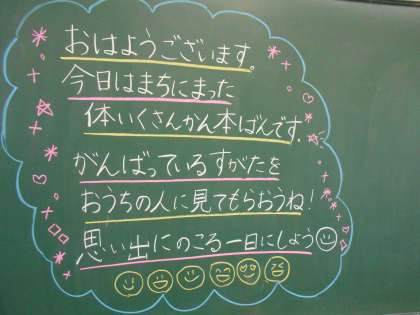 おはようございます。
今日はまちにまった
体いくさんかん本ばんです。
がんばっているすがたを
おうちの人に見てもらおうね！
思い出にのこる一日にしよう